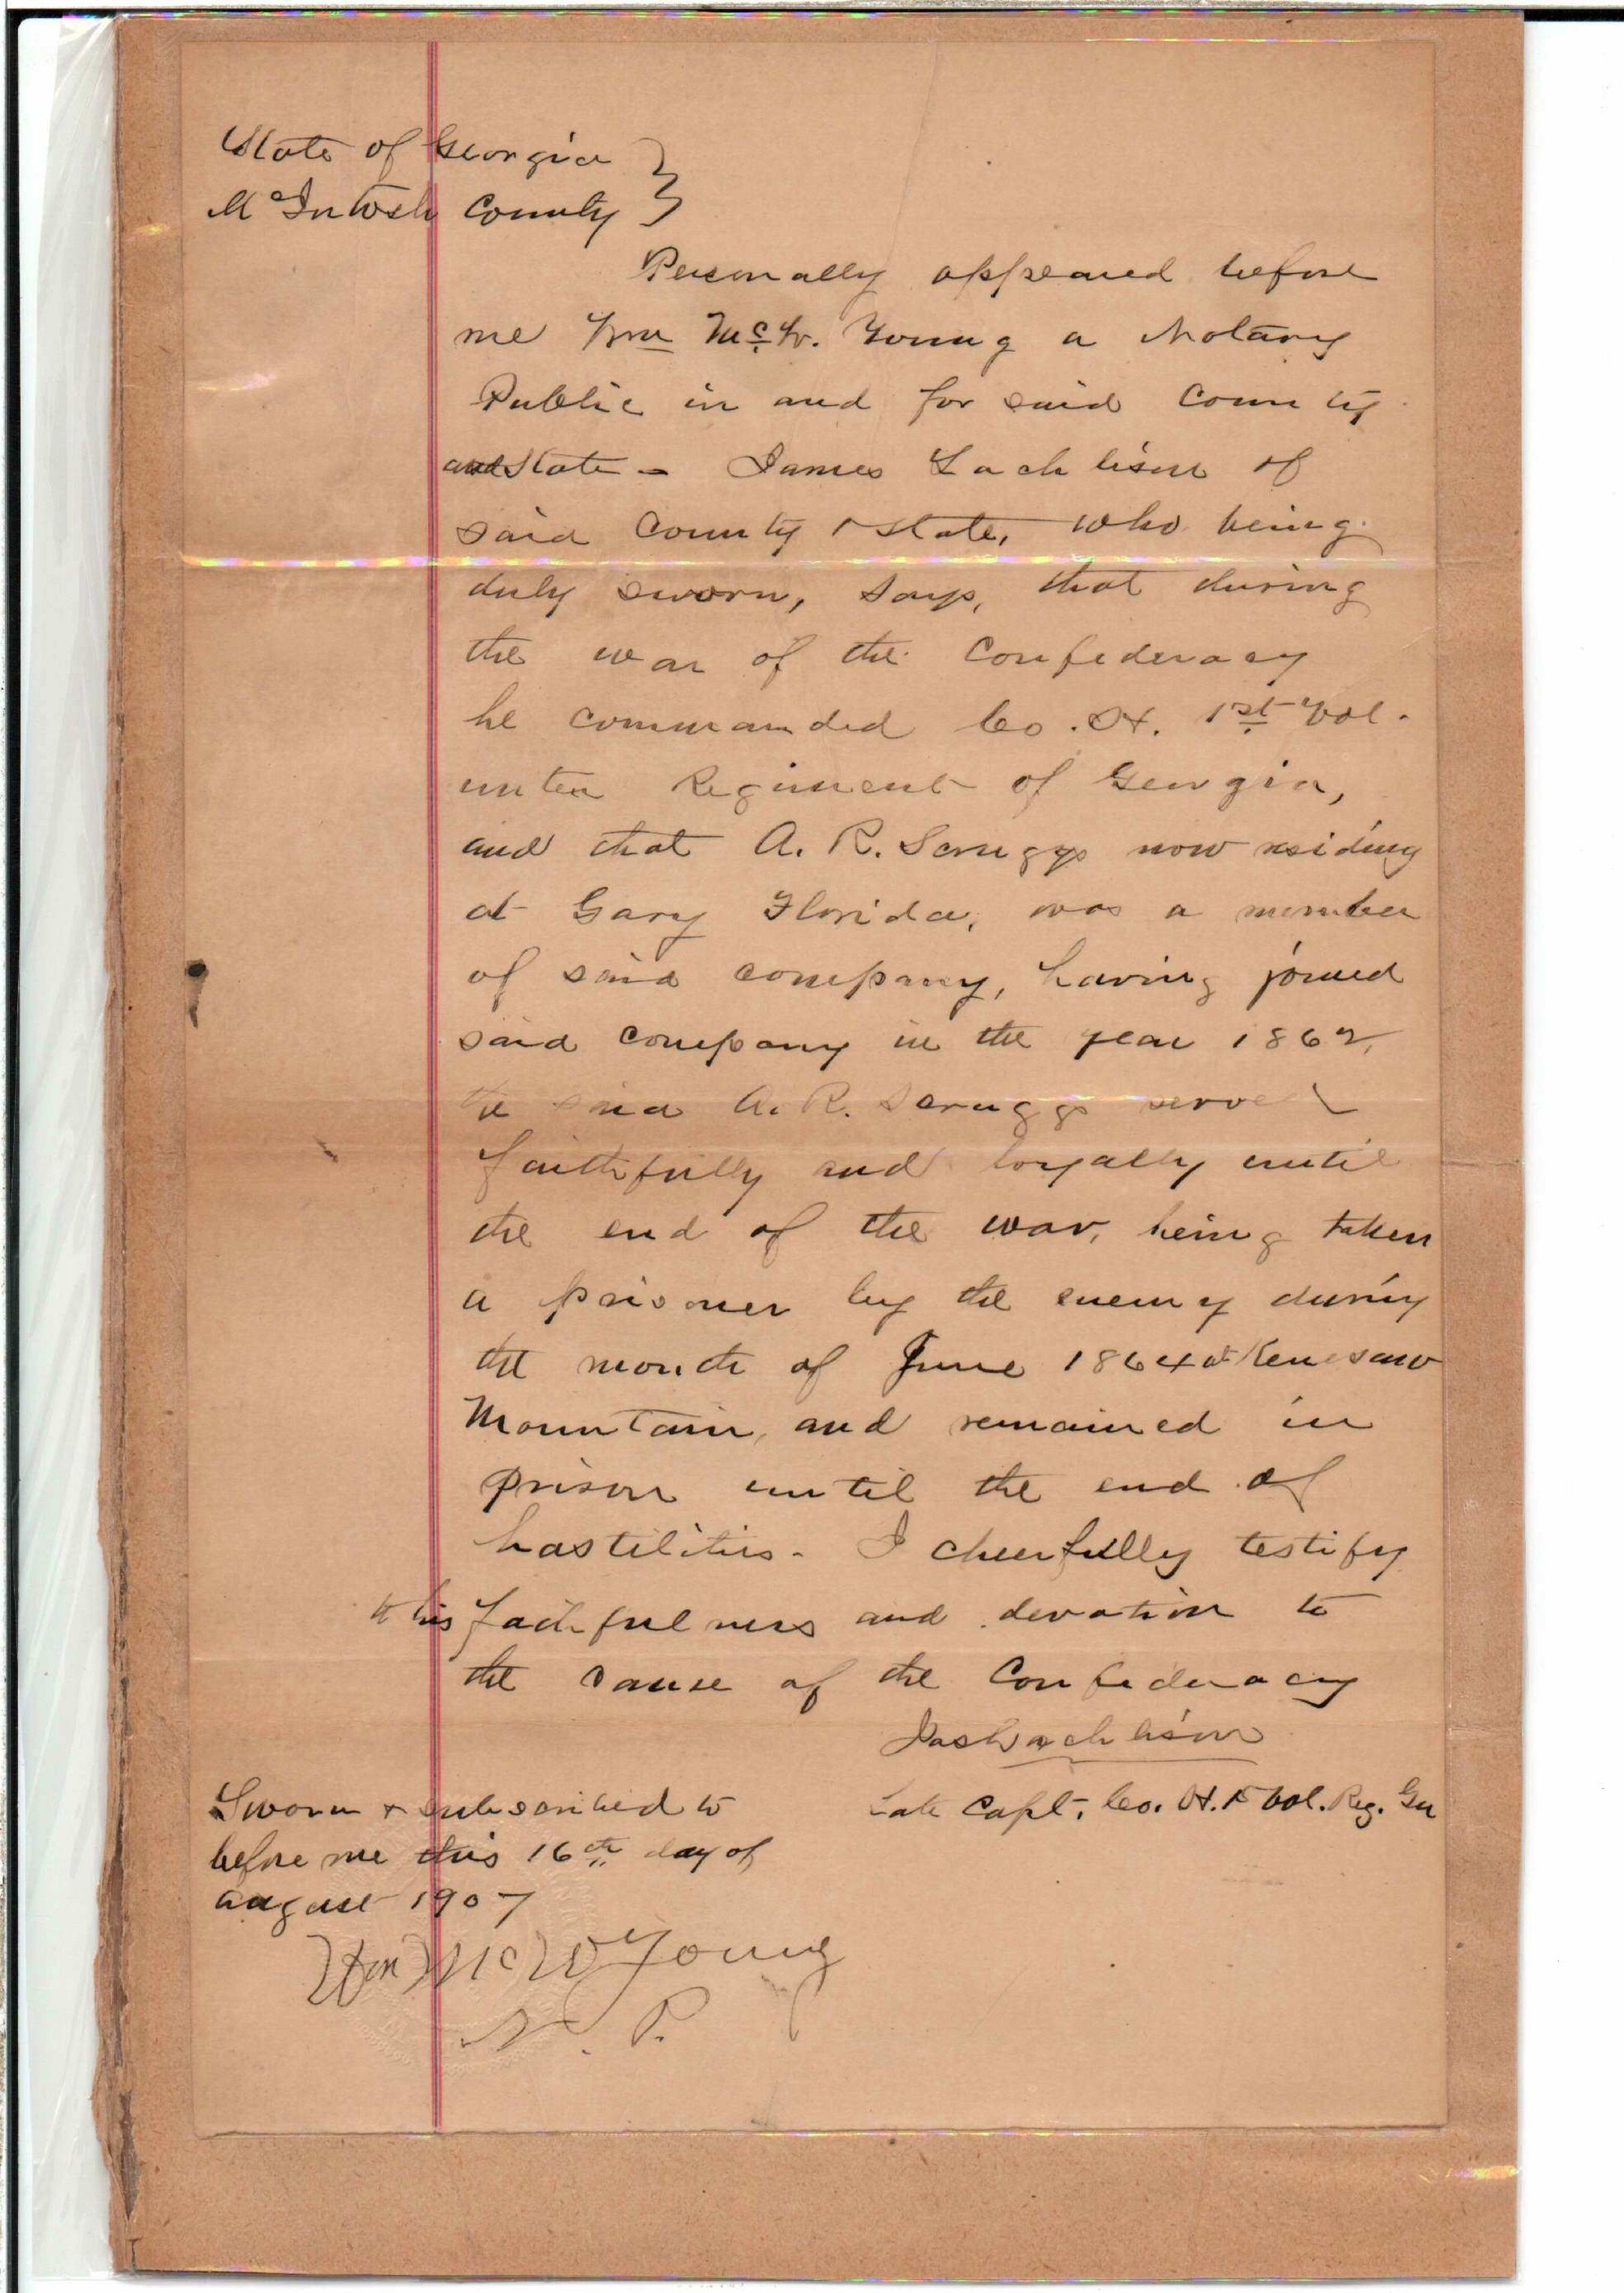 State of Georgia }
McIntosh County }
Personally appeared before
me Wm McW. Young a Notary
Public in and for said County
and State - James Lachlison of
said County & State, who being
duly sworn, says, that during
the war of the Confederacy
he commanded Co. H. 1st Vol.
Regiment of Georgia,
and that A. R. Scruggs now residing
at Gary Florida, was a member
of said company, having joined
said company in the year 1862,
said A. R. Scruggs served
faithfully and loyally until
the end of the war, being taken
a prisoner by the enemy during
the month of June 1864 at Kenesaw
Mountain, and remained in
prison until the end of
hostilities - I cheerfully testify
to his faithfulness and devotion to
the cause of the Confederacy
Jas Lachlison
Late Capt. Co. H. 1st Vol. Reg. Ga
Sworn & subscribed to
before me this 16th day of
August 1907
Wm McW Young
N. P.